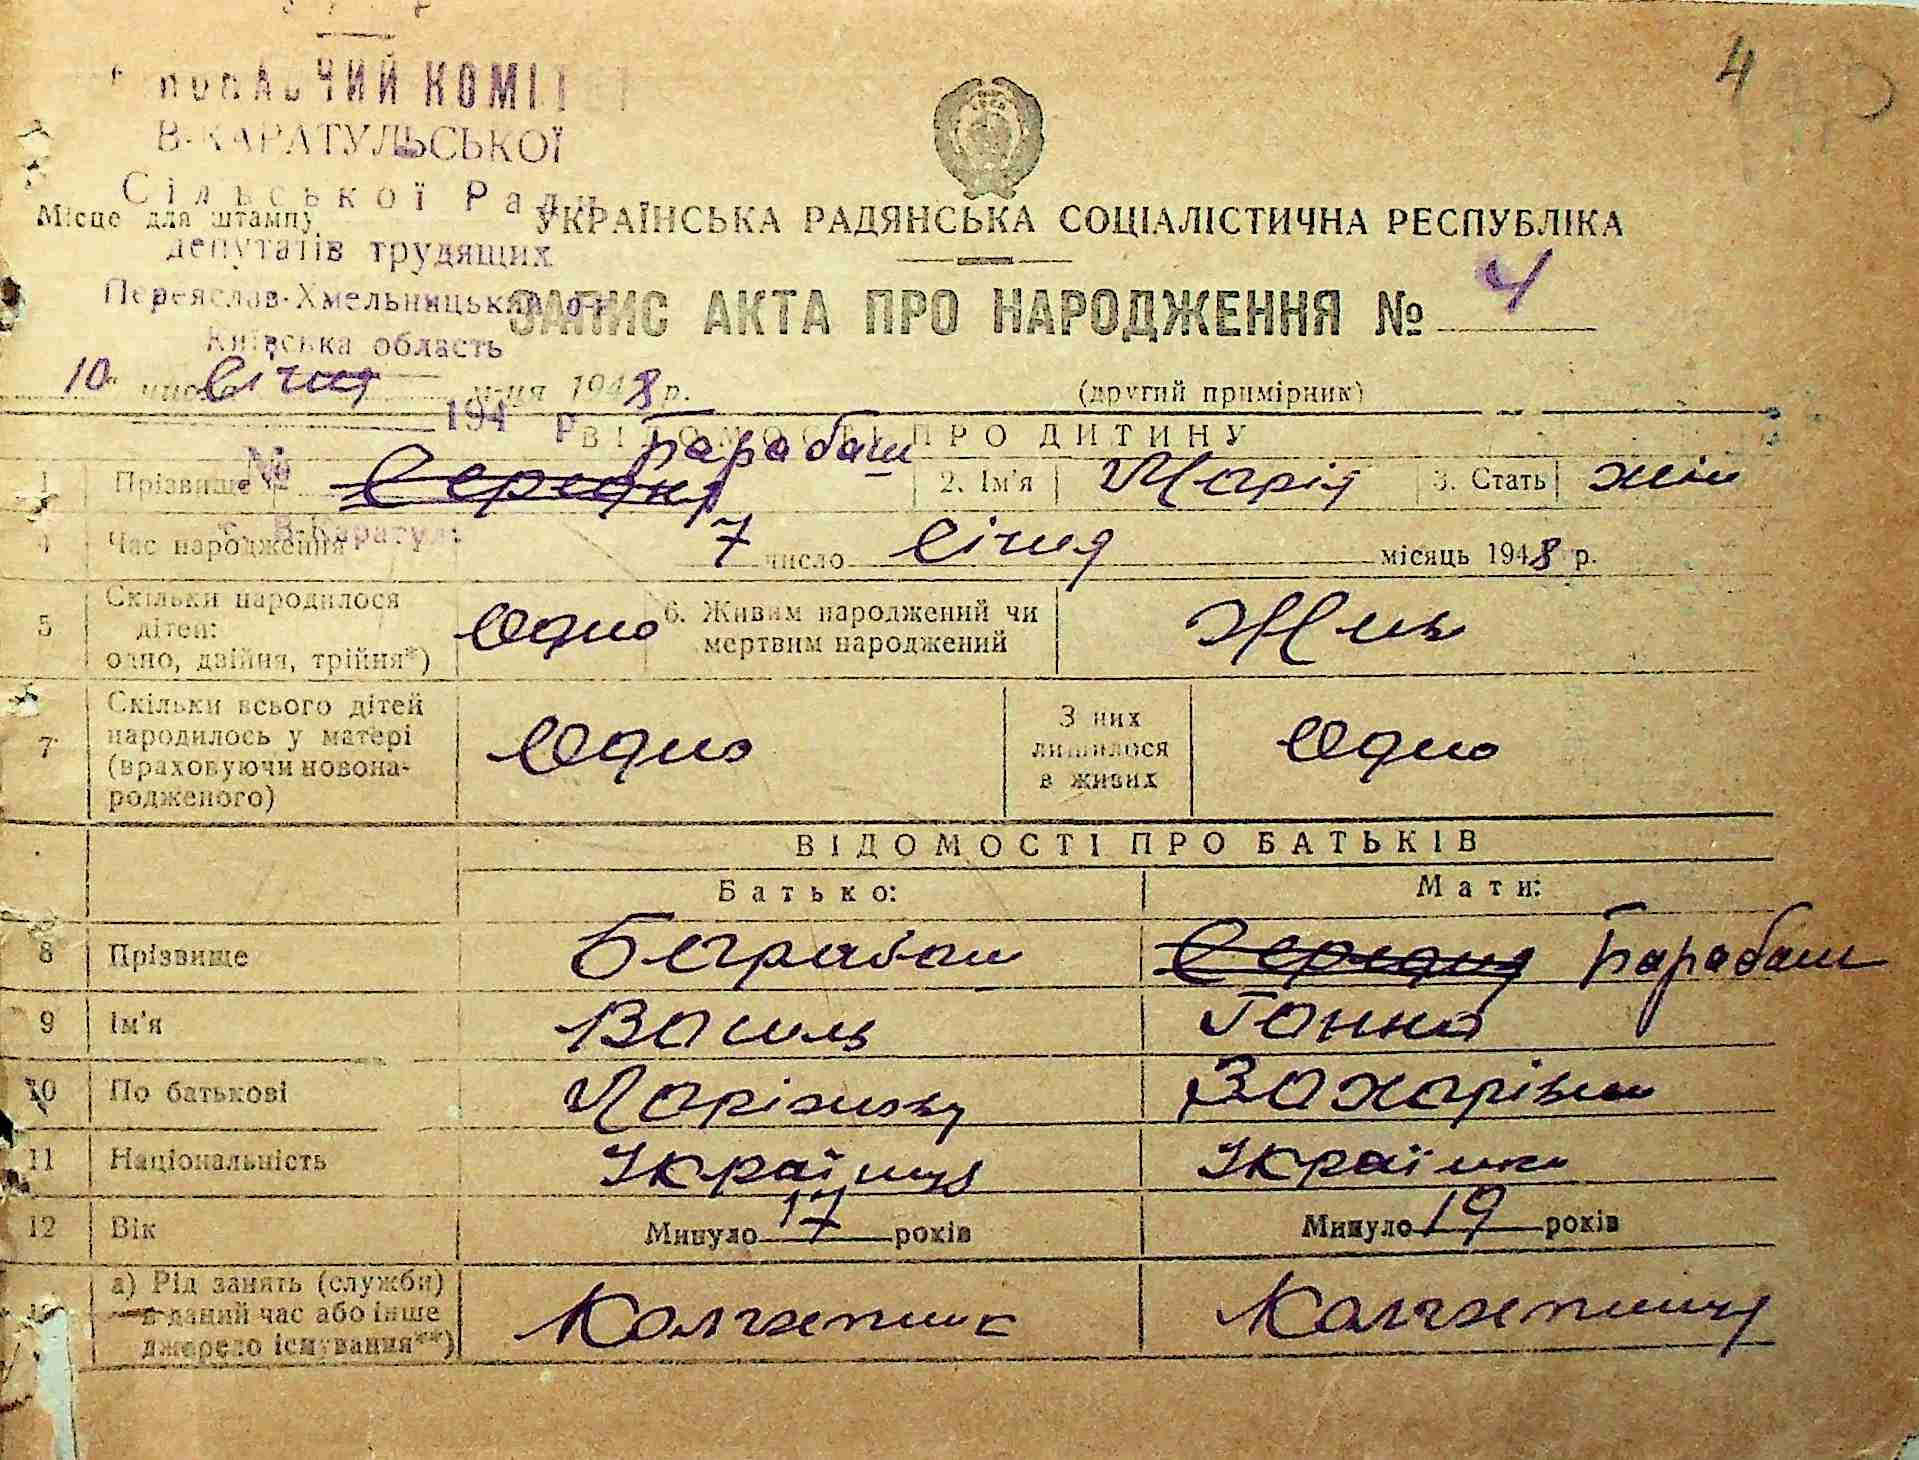 4
ЧИЙ КОМІТ
В-КАРАТУЛЬСЬКОЇ
Сільської Ради
Місце для штампу
УКРАЇНСЬКА РАДЯНСЬКА СОЦІАЛІСТИЧНА РЕСПУБЛІКА
депутатів трудящих
Переяслав-Хмельницький р-н
ЗАПИС АКТА ПРО НАРОДЖЕННЯ № 4
Київська область
10 число січня м-ця 1948 р.
(другий примірник)
194 р.
ВІДОМОСТІ ПРО ДИТИНУ
№
Барабаш
1 Прізвище Середня 2. Ім'я Марія 3. Стать жін
с. В-Каратул:
4 Час народження 7 число січня місяць 1948 р.
5 Скільки народилося дітей: одно, двійня, трійня*) Одно 6. Живим народжений чи мертвим народжений Жив
7 Скільки всього дітей народилось у матері (враховуючи новонародженого) Одно З них лишилося в живих Одно
ВІДОМОСТІ ПРО БАТЬКІВ
Батько: Мати:
8 Прізвище Барабаш Середня Барабаш
9 Ім'я Василь Ганна
10 По батькові Захарівна
11 Національність Українец Українка
12 Вік Минуло 17 років Минуло 19 років
13 а) Рід занять (служби) в даний час або інше джерело існування**) Колгоспник Колгоспниця